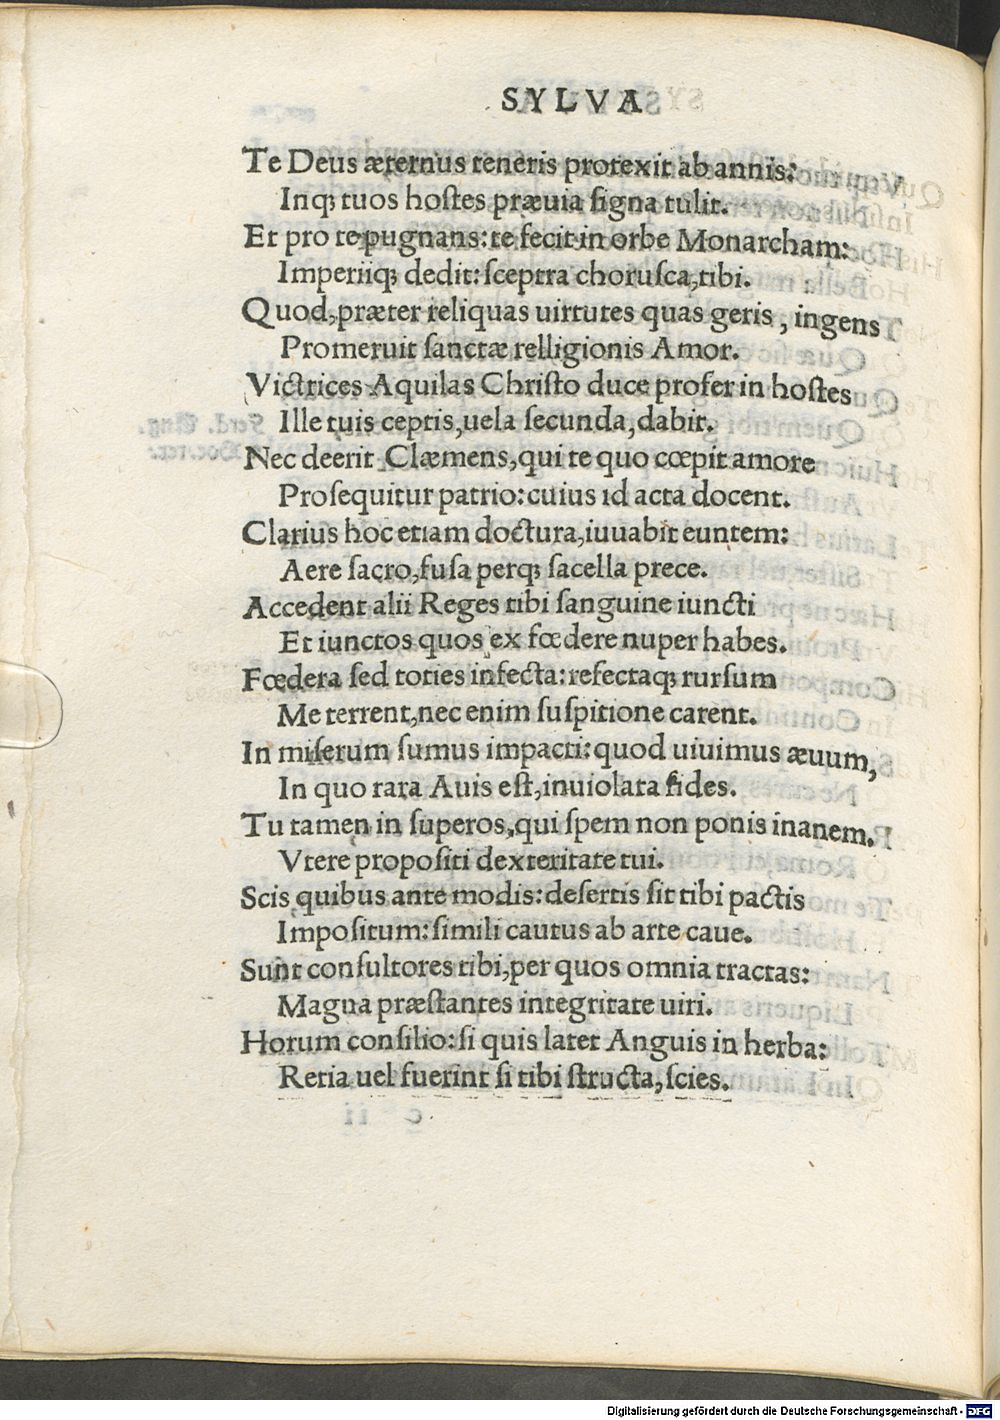 SYLVA
Te Deus æternus teneris protexit ab annis:
Inq; tuos hostes præuia signa tulit.
Et pro te pugnans: te fecit in orbe Monarcham:
Imperiiq; dedit: sceptra chorusca, tibi.
Quod, præter reliquas uirtutes quas geris, ingens
Promeruit sanctæ relligionis Amor.
Victrices Aquilas Christo duce profer in hostes
Ille tuis ceptis, uela secunda, dabit.
Nec deerit Clæmens, qui te quo cœpit amore
Prosequitur patrio: cuius id acta docent.
Clarius hoc etiam doctura, iuuabit euntem:
Aere sacro, fusa perq; sacella prece.
Accedent alii Reges tibi sanguine iuncti
Et iunctos quos ex fœdere nuper habes.
Fœdera sed toties infecta: refectaq; rursum
Me terrent, nec enim suspitione carent.
In miserum sumus impacti: quod uiuimus æuum,
In quo rara Auis est, inuiolata fides.
Tu tamen in superos, qui spem non ponis inanem.
Vtere propositi dexteritate tui.
Scis quibus ante modis: desertis sit tibi pactis
Impositum: simili cautus ab arte caue.
Sunt consultores tibi, per quos omnia tractas:
Magna præstantes integritate uiri.
Horum consilio: si quis latet Anguis in herba:
Retia uel fuerint si tibi structa, scies.
Digitalisierung gefördert durch die Deutsche Forschungsgemeinschaft - DFG